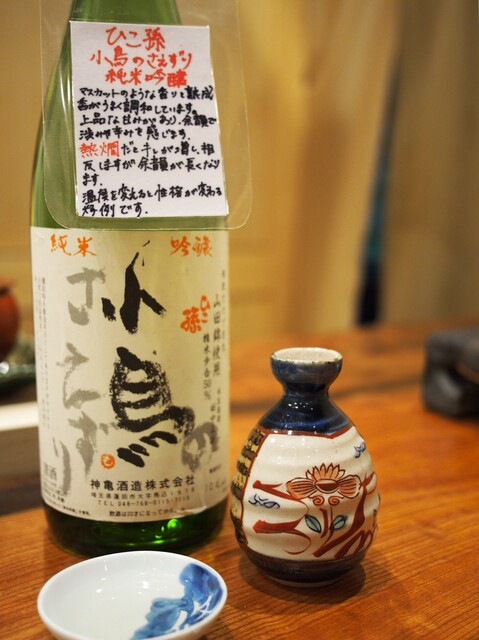 ひこ孫
小鳥のさえずり
純米吟醸
マスカットのような香りと熟成
香がうまく調和しています。
上品な甘みがあり、余韻で
渋みや辛みを感じます。
熱燗だとキレが増し、相
反しますが余韻が長くなり
ます。
温度を変えると性格が変わる
好例です。
純米 吟醸
小鳥の
さえずり
ひこ孫
山田錦使用
精米歩合50%
神亀酒造株式会社
埼玉県蓮田市大字馬込
TEL 048-768-
飲酒は20才になってから